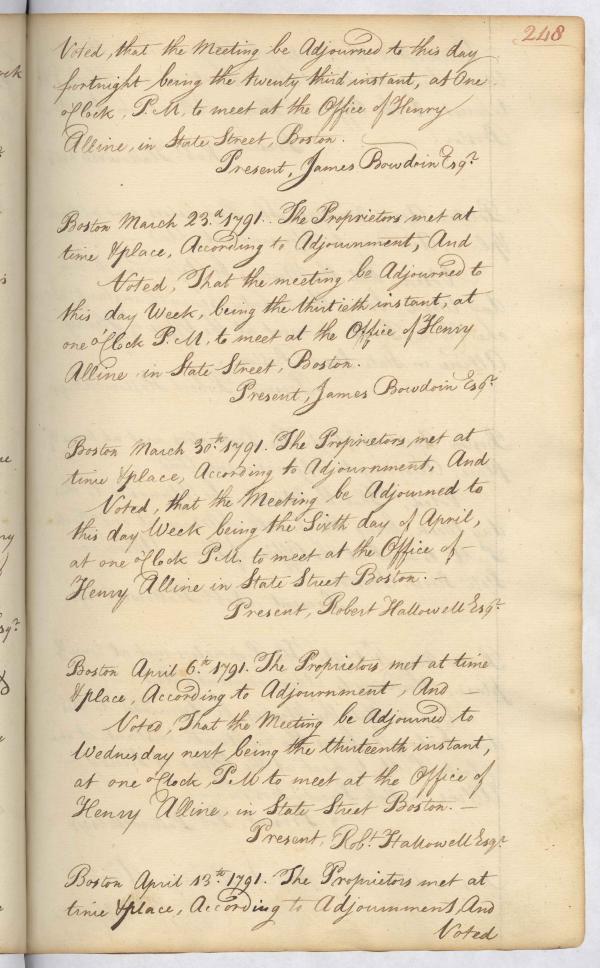 248
Voted, that the Meeting be Adjourned to this day
fortnight being the twenty third instant, at One
o'Clock, P.M. to meet at the Office of Henry
Alline, in State Street, Boston.
Present, James Bowdoin Esqr.
Boston March 23.d 1791. The Proprietors met at
time & place, According to Adjournment, And
Voted, That the meeting be Adjourned to
this day Week, being the thirtieth instant, at
one o'Clock P.M. to meet at the Office of Henry
Alline in State Street, Boston.
Present, James Bowdoin Esqr.
Boston March 30.th 1791. The Proprietors met at
time & place, According to Adjournment, And
Voted, that the Meeting be Adjourned to
this day Week being the Sixth day of April,
at one o'Clock P.M. to meet at the Office of –
Henry Alline in State Street Boston. –
Present, Robert Hallowell Esqr.
Boston April 6.th 1791. The Proprietors met at time
& place, According to Adjournment, And –
Voted, That the Meeting be Adjourned to
Wednesday next being the thirteenth instant,
at one o'Clock, P.M to meet at the Office of
Henry Alline, in State Street Boston. –
Present, Robt. Hallowell Esqr.
Boston April 13.th 1791. The Proprietors met at
time & place, According to Adjournment, And
Voted